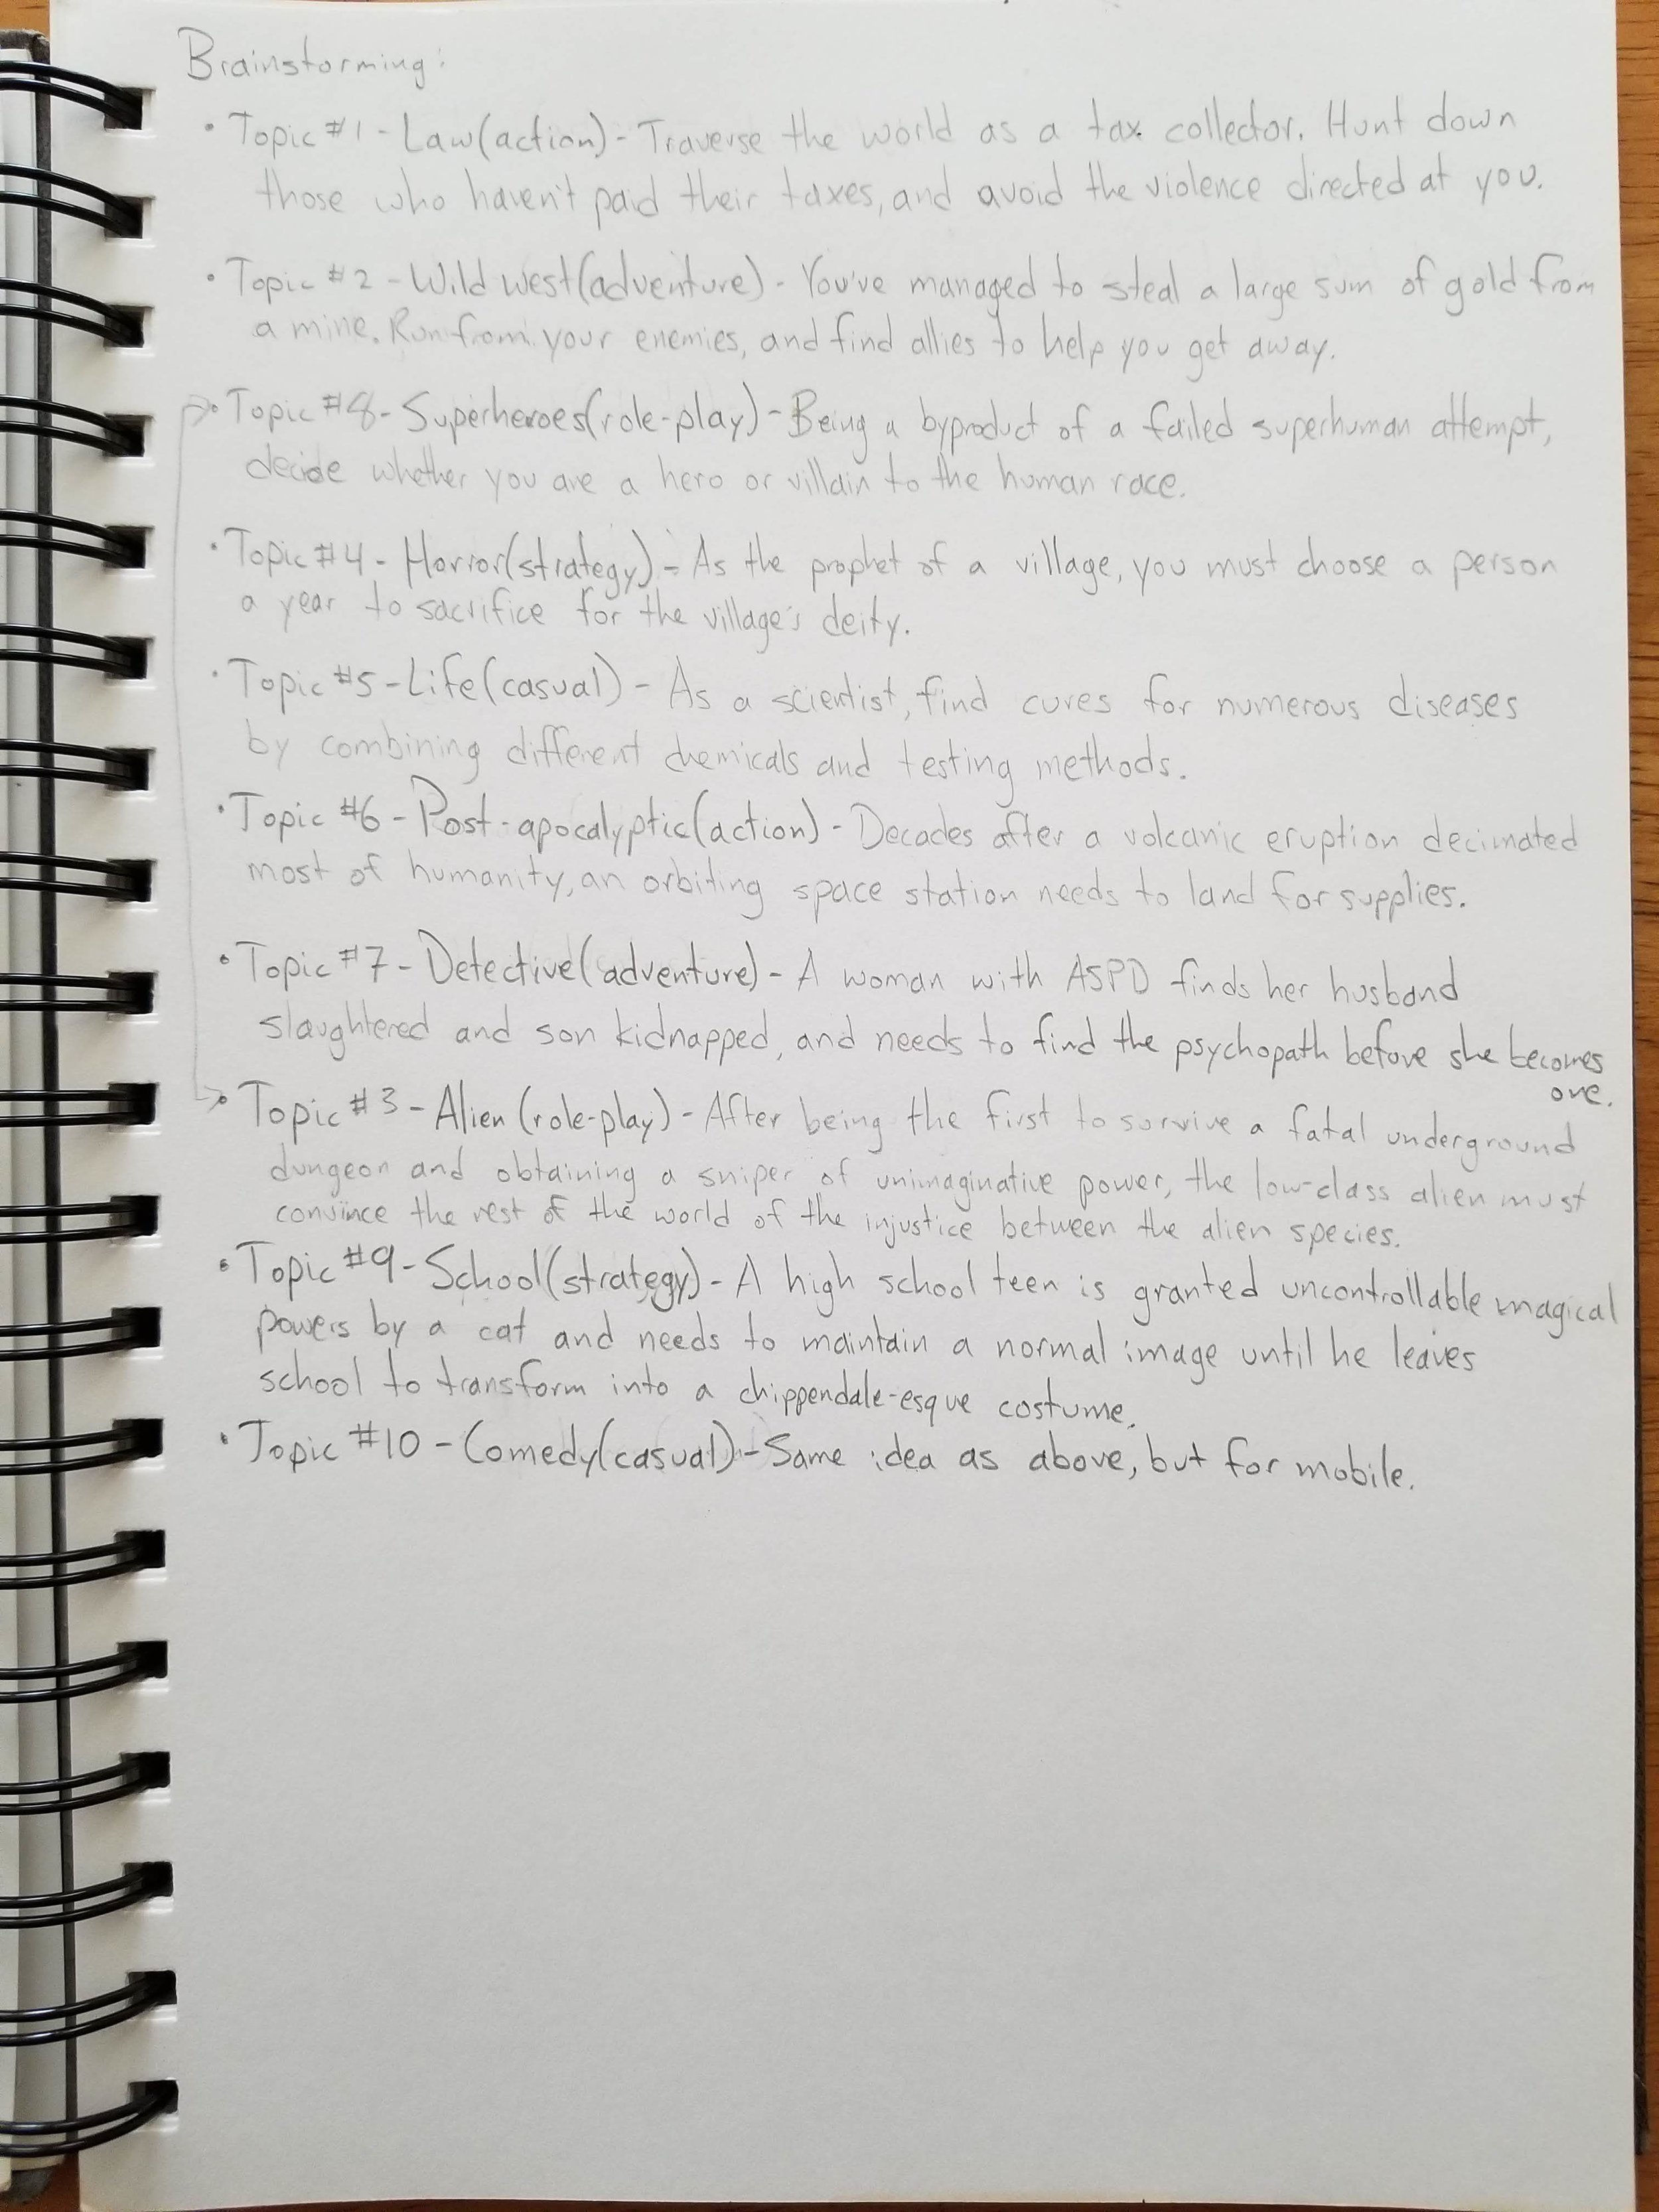 Brainstorming:
• Topic #1 - Law(action) - Traverse the world as a tax collector. Hunt down
those who haven't paid their taxes, and avoid the violence directed at you.
• Topic #2 - Wild west(adventure) - You've managed to steal a large sum of gold from
a mine. Run from your enemies, and find allies to help you get away.
• Topic #8 - Superheroes(role-play) - Being a byproduct of a failed superhuman attempt,
decide whether you are a hero or villain to the human race.
• Topic #4 - Horror(strategy) - As the prophet of a village, you must choose a person
a year to sacrifice for the village's deity.
• Topic #5 - Life(casual) - As a scientist, find cures for numerous diseases
by combining different chemicals and testing methods.
• Topic #6 - Post-apocalyptic(action) - Decades after a volcanic eruption decimated
most of humanity, an orbiting space station needs to land for supplies.
• Topic #7 - Detective(adventure) - A woman with ASPD finds her husband
slaughtered and son kidnapped, and needs to find the psychopath before she becomes
one.
• Topic #3 - Alien (role-play) - After being the first to survive a fatal underground
dungeon and obtaining a sniper of unimaginative power, the low-class alien must
convince the rest of the world of the injustice between the alien species.
• Topic #9 - School(strategy) - A high school teen is granted uncontrollable magical
powers by a cat and needs to maintain a normal image until he leaves
school to transform into a chippendale-esque costume.
• Topic #10 - Comedy(casual) - Same idea as above, but for mobile.